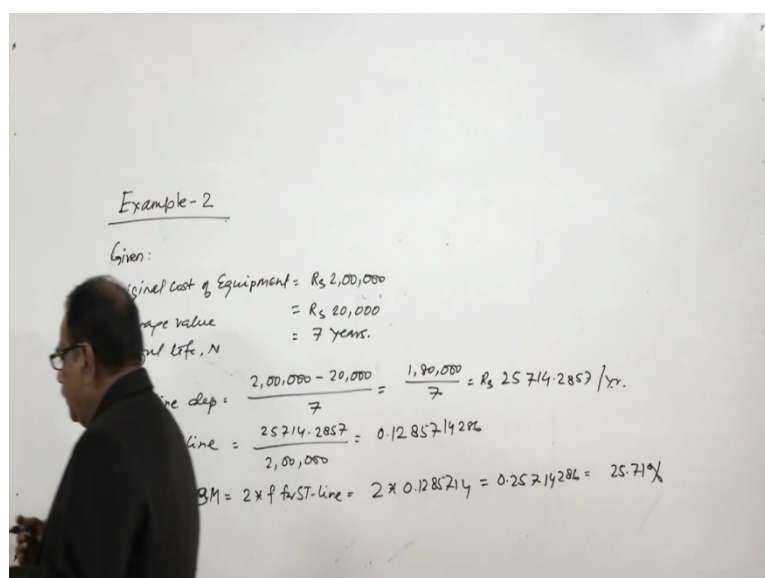 Example-2
Given:
iginal cost of Equipment = Rs 2,00,000
rape value = Rs 20,000
ful life, N = 7 years.
ine dep = 2,00,000 - 20,000 / 7 = 1,80,000 / 7 = Rs 25714.2857/yr.
line = 25714.2857 / 2,00,000 = 0.1285714286
BM = 2 * f for ST-line = 2 * 0.1285714 = 0.25714286 = 25.71%